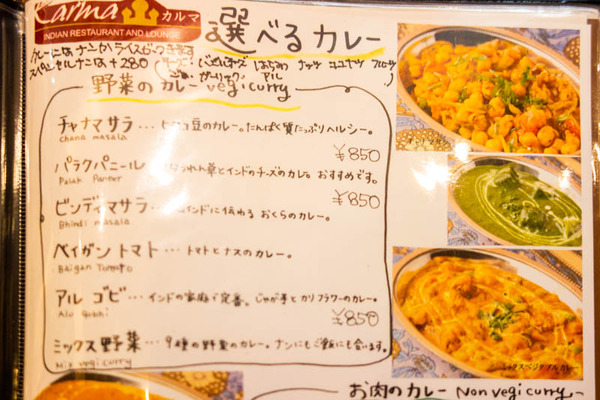 Karma カルマ
INDIAN RESTAURANT AND LOUNGE
選べるカレー
カレーにはナンかライスどつきます
スペシャルナンは+280 (チーズ・ はちみつ ナッツ ココナツ
ごま ガーリック アル )
野菜のカレー vegi curry
チャナマサラ・・・ヒヨコ豆のカレー。たんぱく質たっぷりヘルシー。
Chana masala ¥850
パラクパニール 草とインドのチーズのカレー。おすすめです。
Palak Paneer ¥850
ビンディマサラ インドに伝わる おくらのカレー。
Bhindi masala
ベイガントマト・・・トマトとナスのカレー。
Baigan Tomato
アルゴビ・・・インドの家庭で定番。じゃが芋とカリフラワーのカレー。
Alo gobhi ¥850
ミックス野菜・・・9種の野菜のカレー。ナンにもご飯にも合います。
Mix vegi curry
ベジタブルカレー
お肉のカレー Non vegi curry